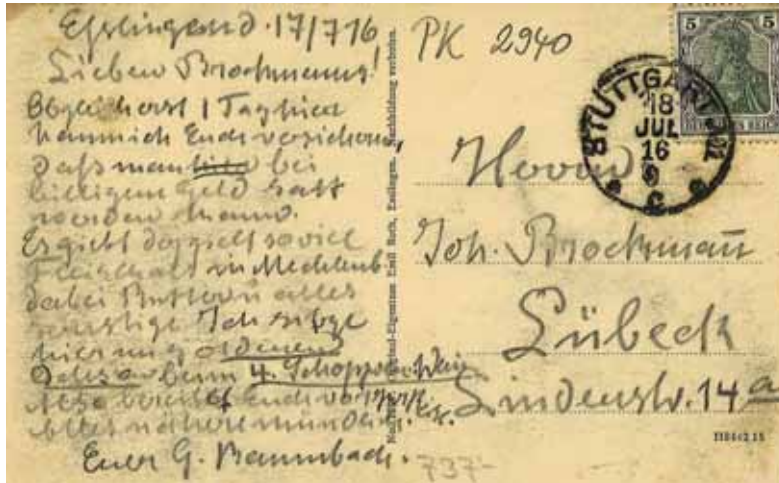 Esslingen d. 17/7 16
Lieber Brockmann!
Obgleich erst 1 Tag hier
kann ich Euch versichern,
daß man bei
billigem Geld satt
werden kann.
Es giebt doppelt soviel
Fleisch als in Mecklenb.
dabei Butter u alles
sonstige Ich sitze
hier im goldenen
Ochsen beim 4. Schoppen Wein
Also bereitet Euch vor
Alles nähere mündlich.
Euer G. Baumbach.
737-
Nachbildung verboten.
Original-Eigentum Emil Roth, Esslingen.
PK 2940
STUTTGART
18
JUL
16
C
5 5
DEUTSCHES REICH
Herrn
Joh. Brockmann
Lübeck
Lindenstr. 14a